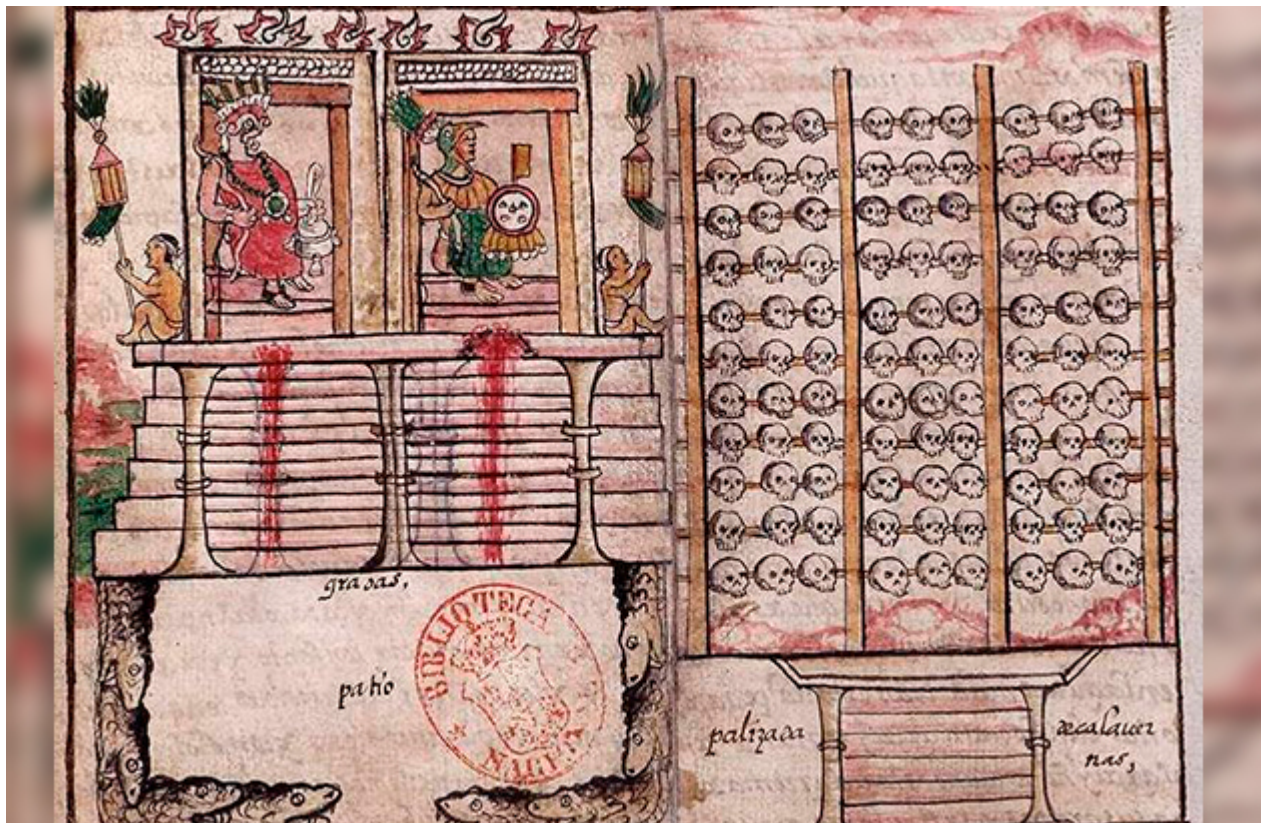 gradas,
patio
BIBLIOTECA
NACIONAL
palizada
de calaver
nas,